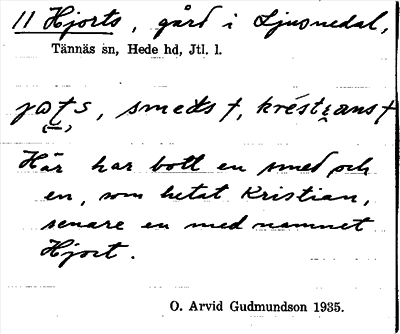 11 Hjorts, gård i Ljusnedal,
Tännäs sn, Hede hd, Jtl. l.
smeds †, kréstɛans †
Här har bott en smed och
en, som hetat Kristian,
senare en med namnet
Hjort.
O. Arvid Gudmundson 1935.